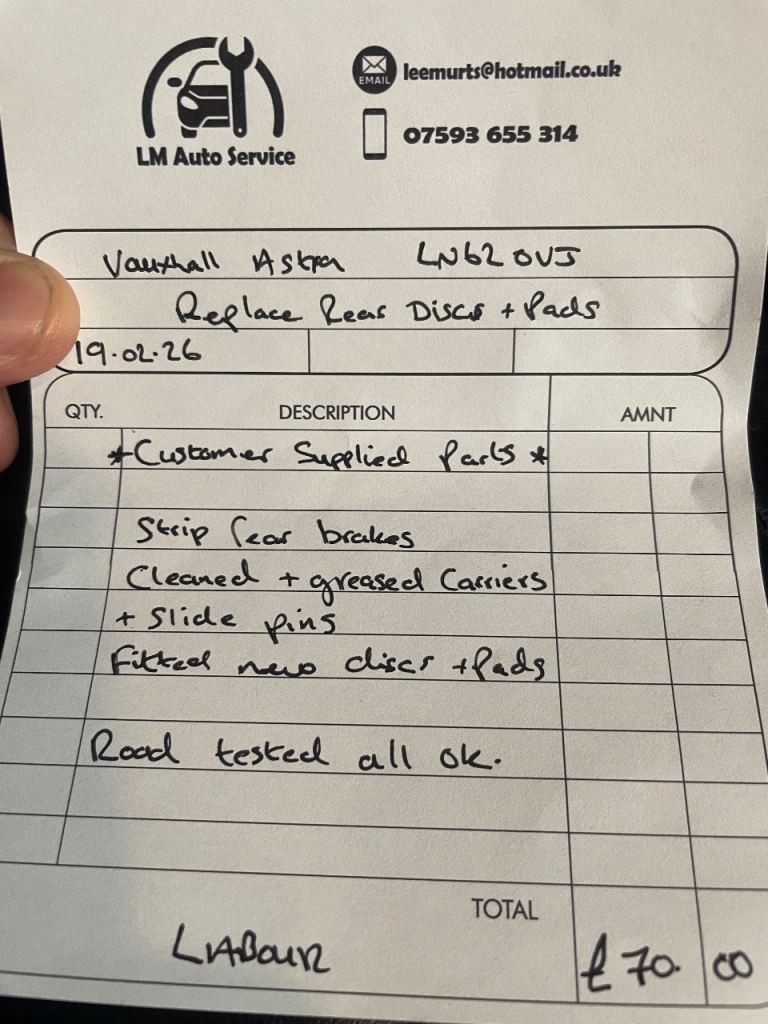 EMAIL leemurts@hotmail.co.uk
07593 655 314
LM Auto Service
Vauxhall Astra LN62 OVJ
Replace Rear Discs + Pads
19.02.26
QTY. DESCRIPTION AMNT
*Customer Supplied Parts*
Strip rear brakes
Cleaned + greased Carriers
+ Slide pins
Fitted new discs + Pads
Road tested all ok.
TOTAL
LABOUR £70.00